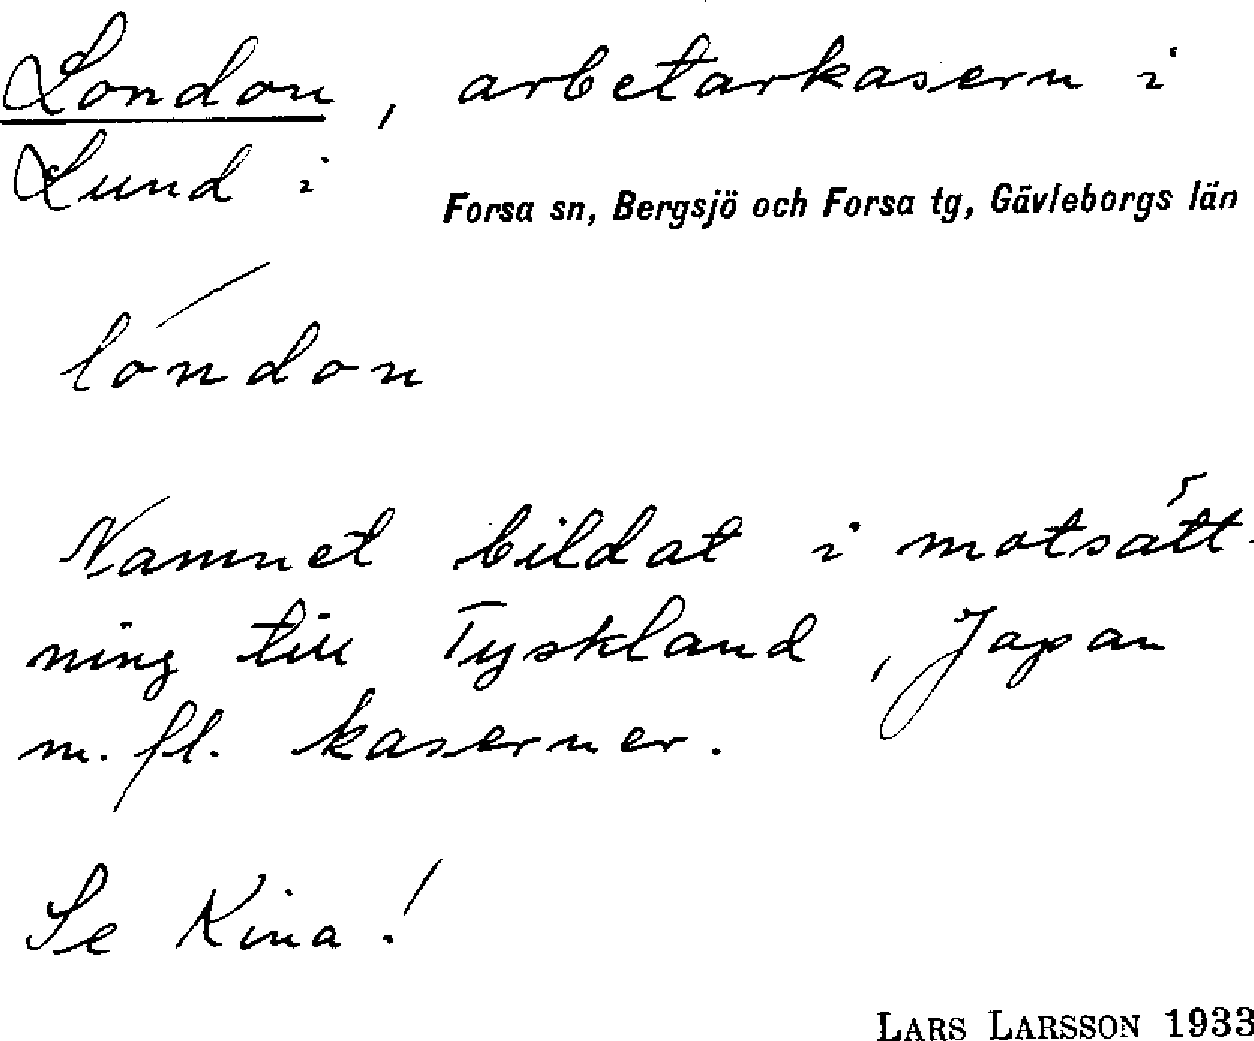 London, arbetarkasern i
Lund i
Forsa sn, Bergsjö och Forsa tg, Gävleborgs län
lóndon
Namnet bildat i motsätt-
ning till Tyskland, Japan
m. fl. kaserner.
Se Kina!
LARS LARSSON 1933